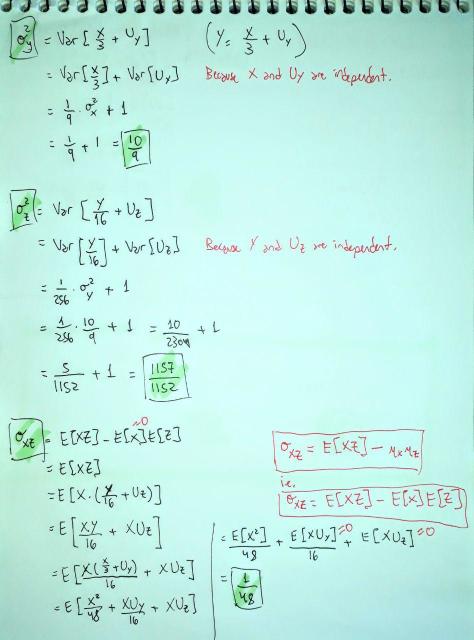 σ²_y = Var[X/3 + U_Y] (Y = X/3 + U_Y)
= Var[X/3] + Var[U_Y] Because X and U_Y are independent.
= 1/9 · σ²_x + 1
= 1/9 + 1 = 10/9
σ²_z = Var[Y/16 + U_Z]
= Var[Y/16] + Var[U_Z] Because Y and U_Z are independent.
= 1/256 · σ²_y + 1
= 1/256 · 10/9 + 1 = 10/2304 + 1
= 5/1152 + 1 = 1157/1152
σ_xz = E[XZ] - E[X]E[Z] =0
= E[XZ]
= E[X·(Y/16 + U_Z)]
= E[XY/16 + XU_Z]
= E[X(X/3 + U_Y)/16 + XU_Z]
= E[X²/48 + XU_Y/16 + XU_Z]
σ_xz = E[XZ] - μ_x μ_z
i.e.
σ_xz = E[XZ] - E[X]E[Z]
= E[X²]/48 + E[XU_Y]/16 =0 + E[XU_Z] =0
= 1/48